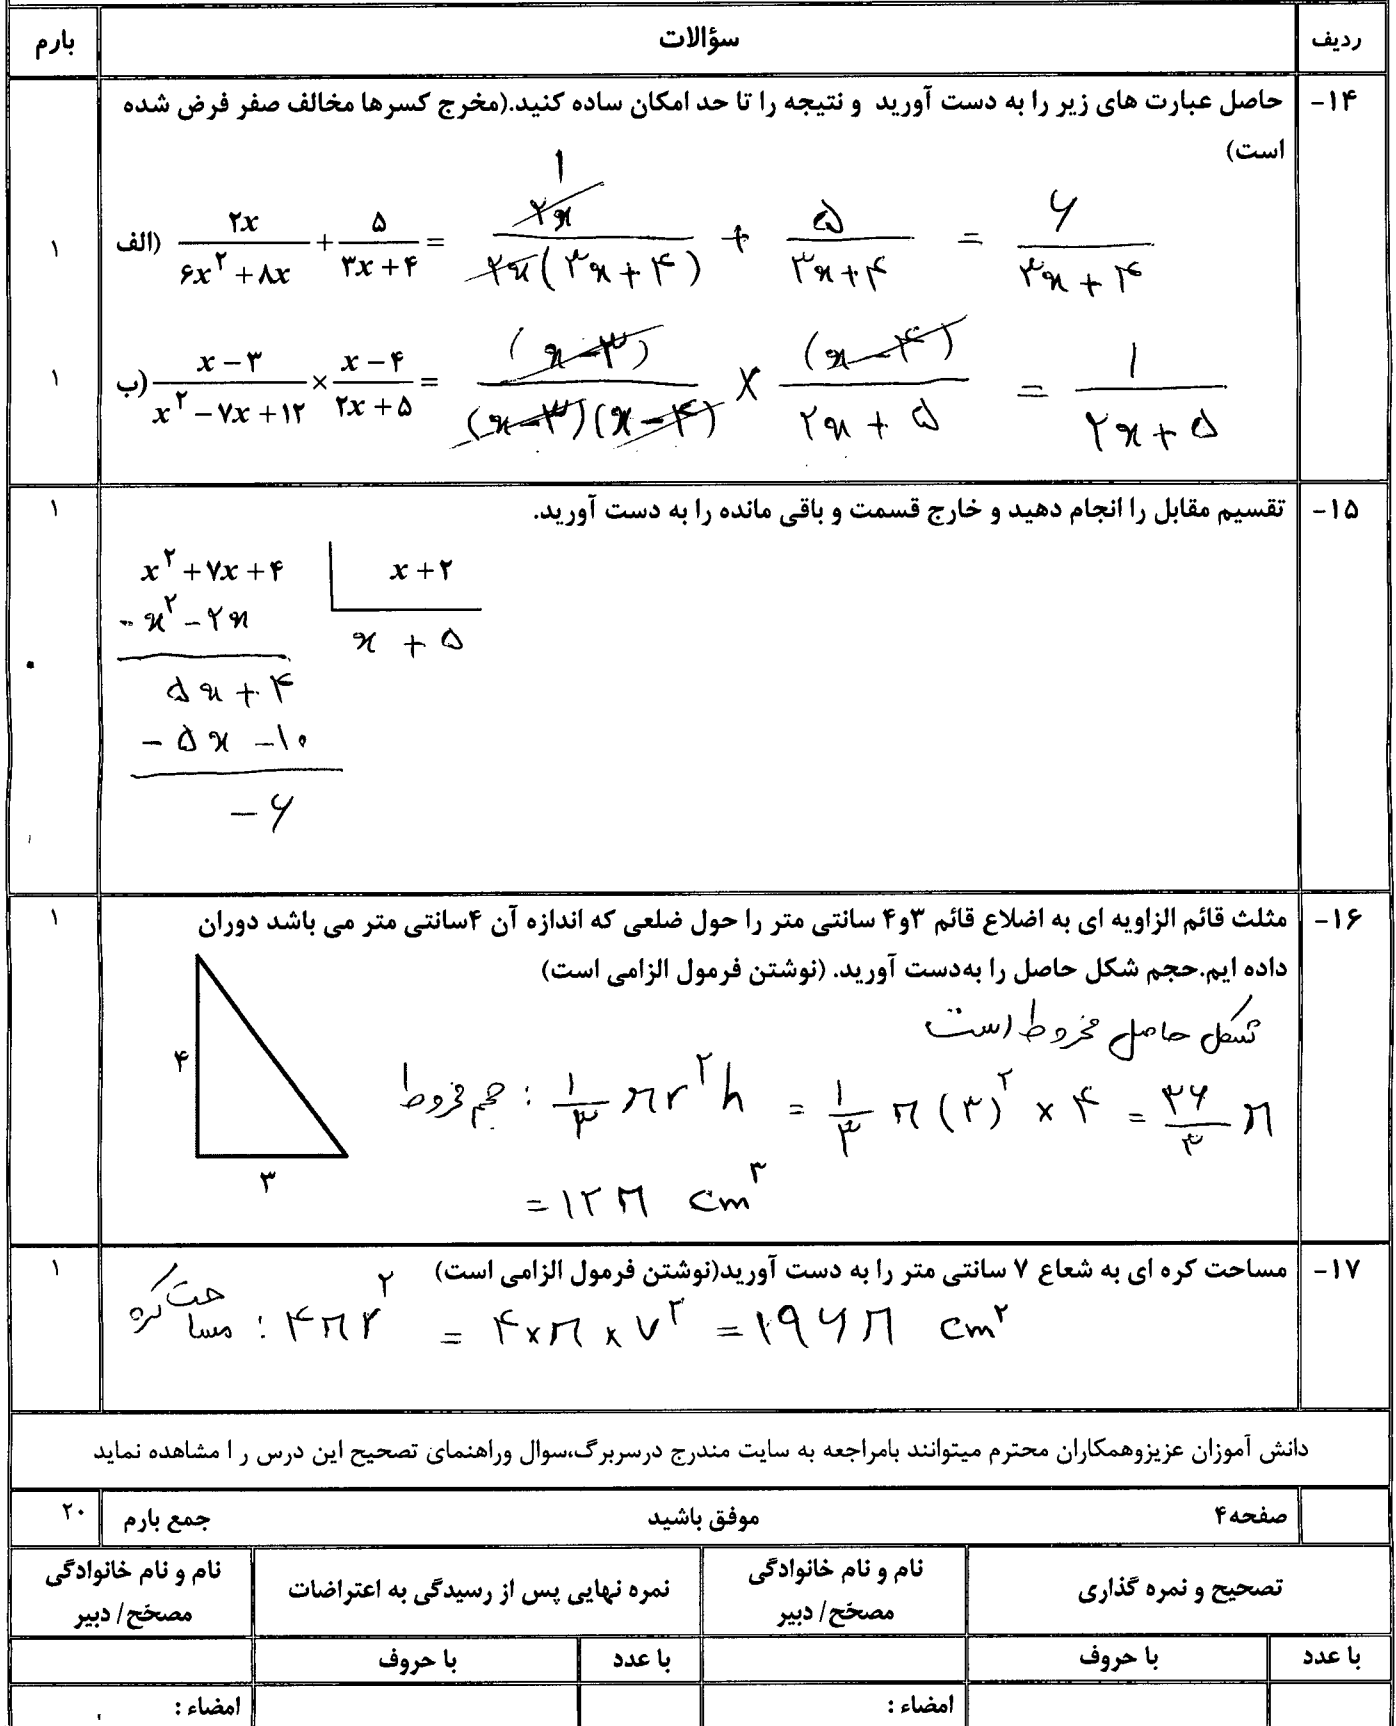 ردیف سؤالات بارم
۱۴- حاصل عبارت های زیر را به دست آورید و نتیجه را تا حد امکان ساده کنید.(مخرج کسرها مخالف صفر فرض شده
است)
الف) ۲x/(۶x^۲ + ۸x) + ۵/(۳x + ۴) = ۲x/(۲x(۳x + ۴)) + ۵/(۳x + ۴) = ۶/(۳x + ۴) ۱
۱
ب) (x - ۳)/(x^۲ - ۷x + ۱۲) × (x - ۴)/(۲x + ۵) = (x - ۳)/((x - ۳)(x - ۴)) × (x - ۴)/(۲x + ۵) = ۱/(۲x + ۵) ۱
۱۵- تقسیم مقابل را انجام دهید و خارج قسمت و باقی مانده را به دست آورید. ۱
x^۲ + ۷x + ۴ | x + ۲
- x^۲ - ۲x x + ۵
۵x + ۴
- ۵x - ۱۰
- ۶
۱۶- مثلث قائم الزاویه ای به اضلاع قائم ۳و۴ سانتی متر را حول ضلعی که اندازه آن ۴سانتی متر می باشد دوران ۱
داده ایم.حجم شکل حاصل را به‌دست آورید. (نوشتن فرمول الزامی است)
شکل حاصل مخروط است
۴
حجم مخروط : ۱/۳ πr^۲h = ۱/۳ π(۳)^۲ × ۴ = ۳۶/۳ π
۳
= ۱۲π cm^۳
۱۷- مساحت کره ای به شعاع ۷ سانتی متر را به دست آورید(نوشتن فرمول الزامی است) ۱
مساحت کره : ۴πr^۲ = ۴×π×۷^۲ = ۱۹۶π cm^۲
دانش آموزان عزیزوهمکاران محترم میتوانند بامراجعه به سایت مندرج درسربرگ،سوال وراهنمای تصحیح این درس ر ا مشاهده نماید
صفحه۴ موفق باشید جمع بارم ۲۰
تصحیح و نمره گذاری نام و نام خانوادگی مصحّح/ دبیر نمره نهایی پس از رسیدگی به اعتراضات نام و نام خانوادگی مصحّح/ دبیر
با عدد با حروف با عدد با حروف
امضاء : امضاء :